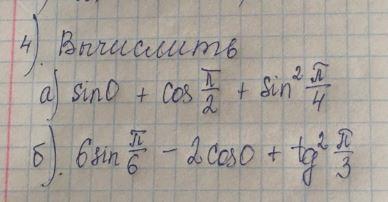 4). Вычислить
а) sin0 + cos π/2 + sin² π/4
б). 6sin π/6 - 2cos0 + tg² π/3